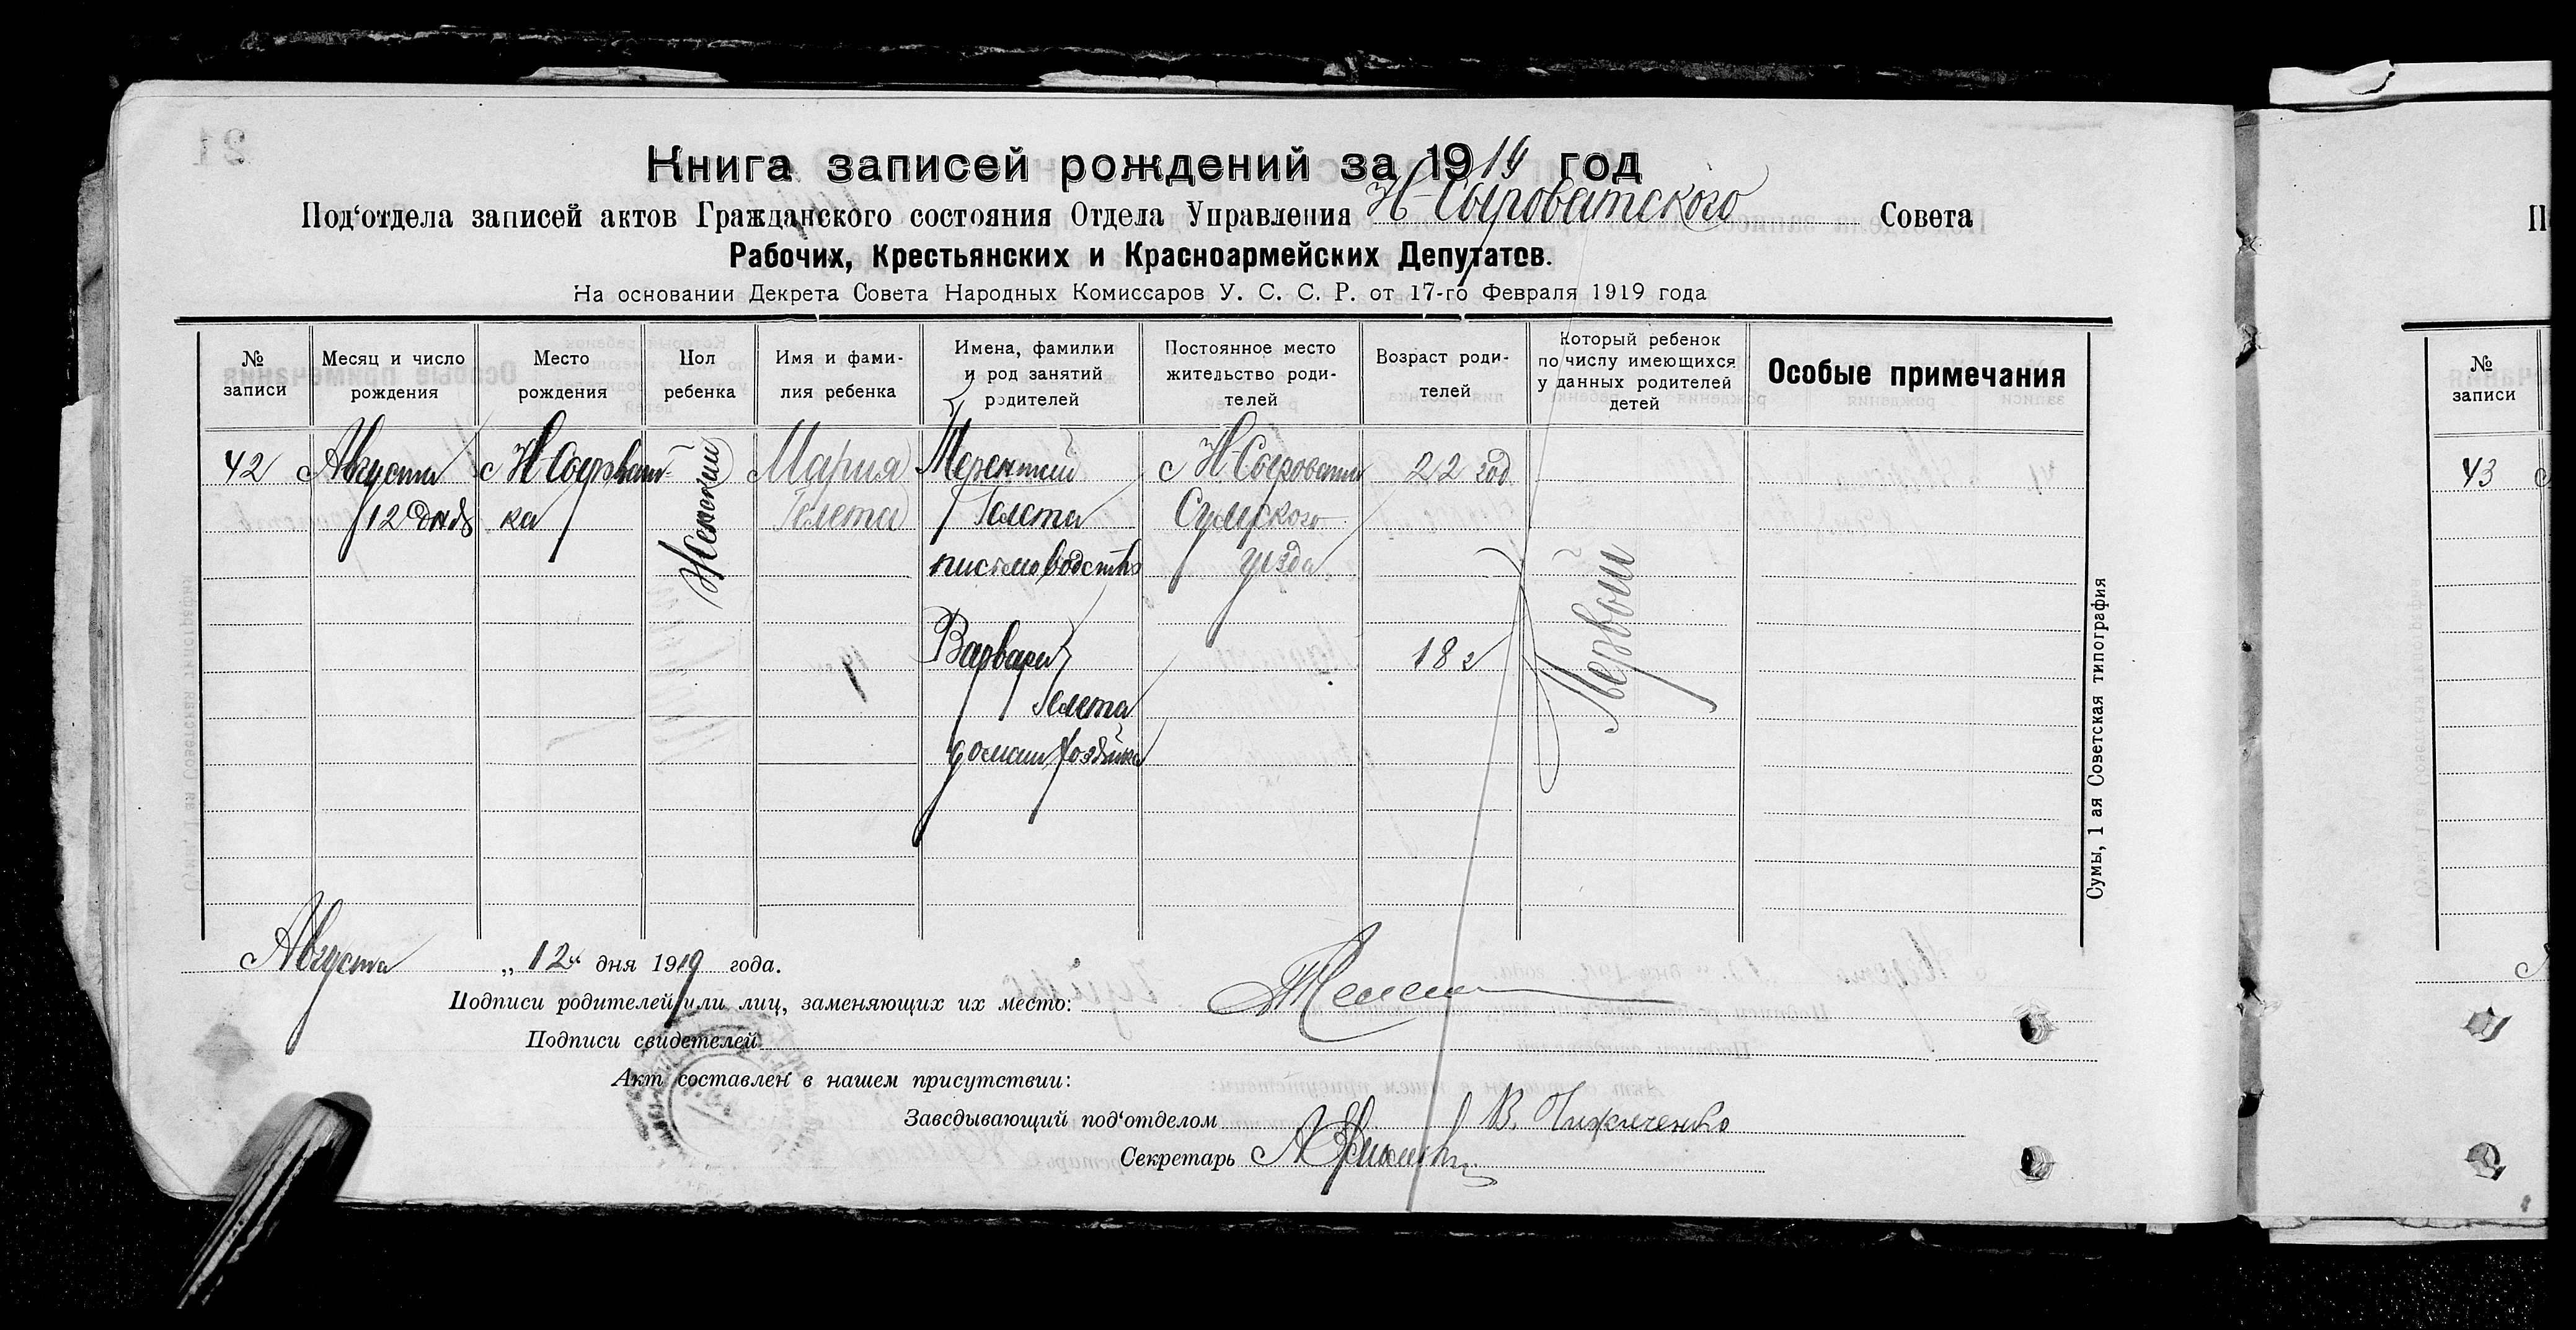 Книга записей рождений за 1919 год
Под'отдела записей актов Гражданского состояния Отдела Управления Н-Сыроватского Совета
Рабочих, Крестьянских и Красноармейских Депутатов.
На основании Декрета Совета Народных Комиссаров У. С. С. Р. от 17-го Февраля 1919 года
№ записи
Месяц и число рождения
Место рождения
Пол ребенка
Имя и фамилия ребенка
Имена, фамилки и род занятий родителей
Постоянное место жительство родителей
Возраст родителей
Который ребенок по числу имеющихся у данных родителей детей
Особые примечания
42
Августа
12 дня
с Н Сыроват-
ка
Женский
Мария
Гелета
Терентий
Гелета
письмоводств
Варвара
Гелета
домаш хозяйка
с Н-Сыроватки
Сумского
уезда
22 год
18 г
Первый
Сумы, 1 ая Советская типография
Августа „12“ дня 1919 года.
Подписи родителей или лиц, заменяющих их место:
Подписи свидетелей
Акт составлен в нашем присутствии:
Заведывающий под'отделом В.
Секретарь
№ записи
43